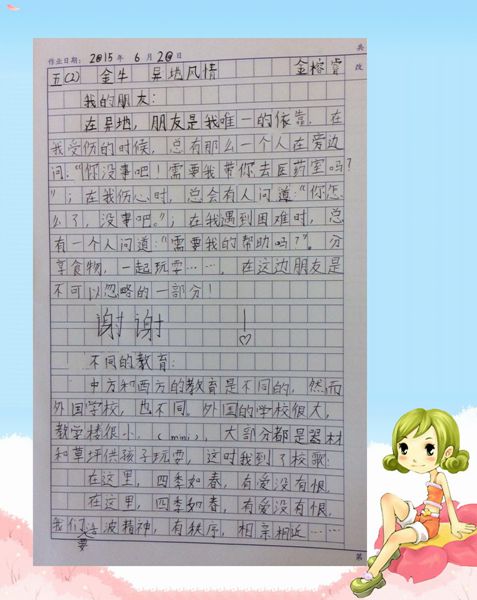 共
作业日期: 2015年 6月 20日
改
五(2) 金牛 异地风情 金榕睿
我的朋友:
在异地,朋友是我唯一的依靠,在
我受伤的时候,总有那么一个人在旁边
问:“你没事吧!需要我带你去医药室吗?
”;在我伤心时,总会有人问道:“你怎
么了,没事吧。”;在我遇到困难时,总
有一个人问道:“需要我的帮助吗?”。分
享食物,一起玩耍……,在这边朋友是
不可以忽略的一部分!
谢谢!
不同的教育:
中方和西方的教育是不同的,然而
外国学校,也不同。外国的学校很大,
教学楼很小,(mini),大部分都是器材
和草坪供孩子玩耍,这时我到了校歌:
在这里,四季如春,有爱没有恨,
在这里,四季如春,有爱没有恨,
我们要 波精神,有秩序,相亲相近……
第